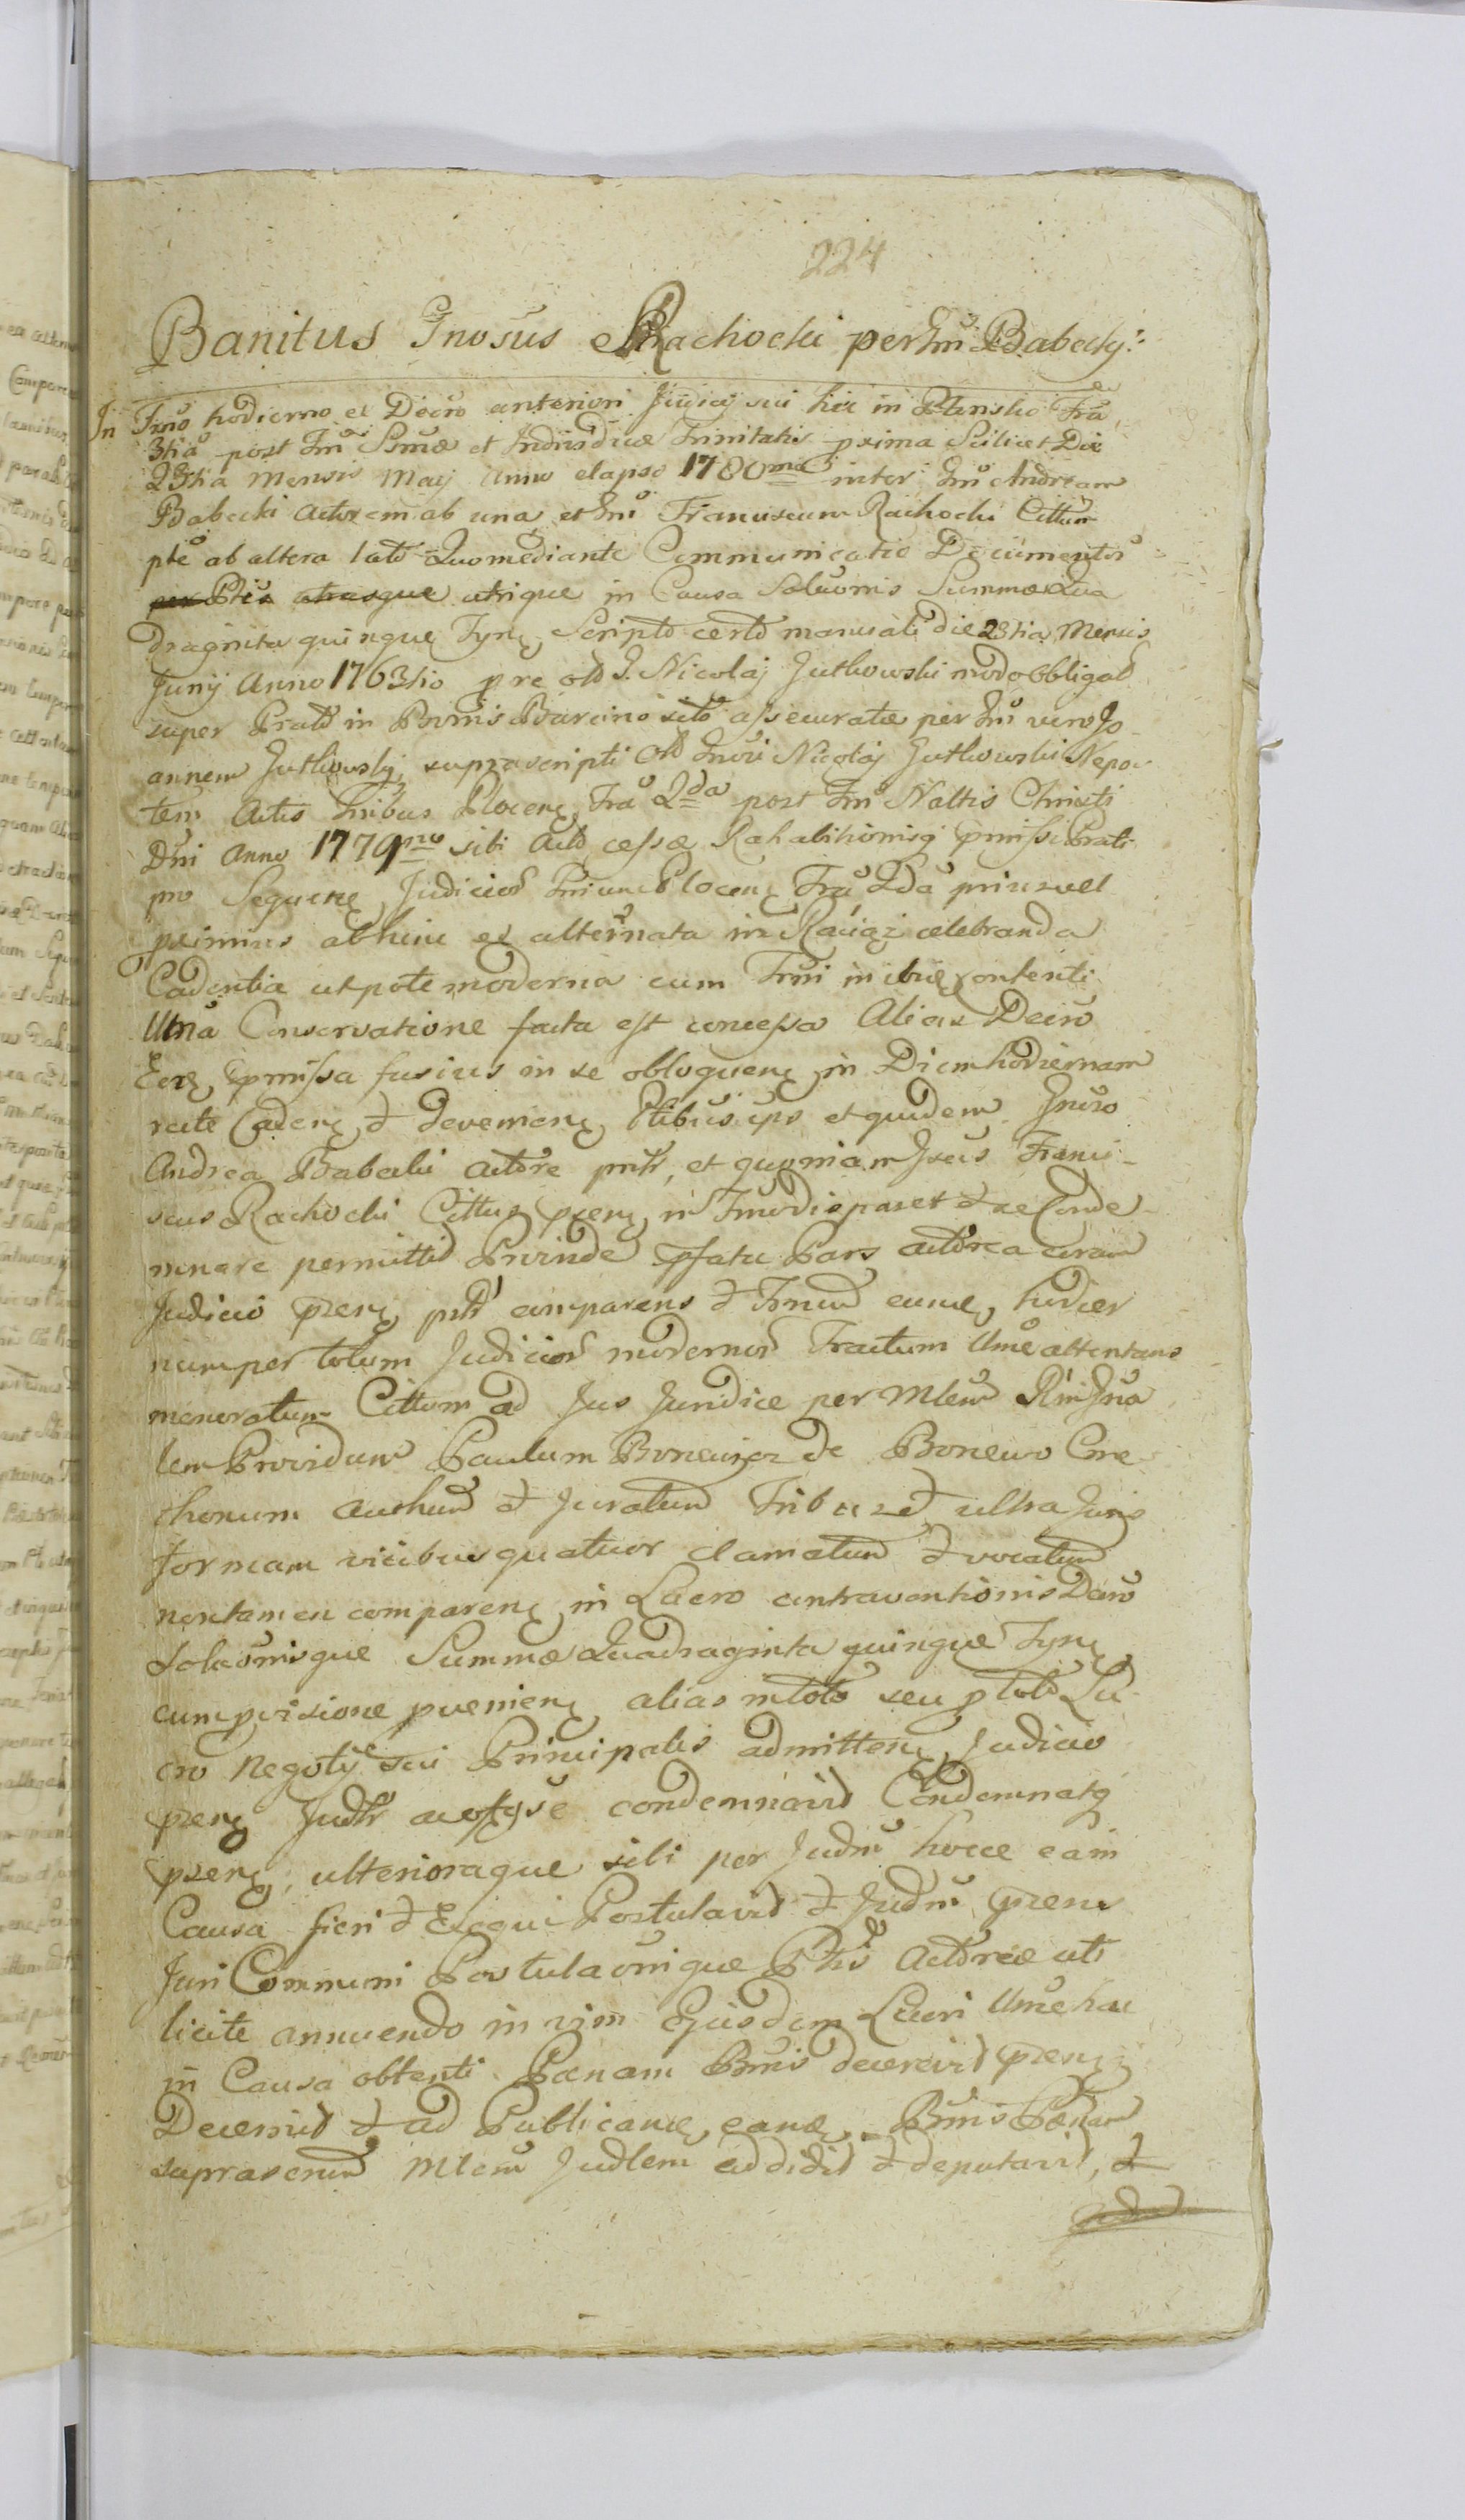 224
Banitus Gnosus Rachocki per Gnm Babecky:
In Tmo hodierno ex Decro anteriori Judicij sui hic in Plonsko Fra
3tia post Fm Smæ et Individuæ Trinitatis proxima Scilicet Die
23tia Mensis Maij Anno elapso 1780mo inter Gnm Andream
Babecki Actorem ab una et Gnm Franciscum Rachocki Cittum
pte ab altera lato Quo mediante Communicatio Documentor
per Ptes utrasque utrique in Causa Soluonis Summæ Qua
draginta quinque Tynf Scripto certo manuali die 23tia Mensis
Junij Anno 1763tio pre olo G. Nicolaj Jutkowski modo obligato
super Prato in Bonis Barcino sito assecuratæ per Gnm vero Jo-
annem Jutkowski suprascripti olo Gnosi Nicolaj Jutkowski Nepo-
tem Actis Tribus Plocen Fra 2da post Fm Naltis Christi
Dni Anno 1779no sibi Acto cessæ Rehabitionisq pmissi Prati
pro Sequen Judicior Trium Plocen Fra 2da prius vel
proximius abhinc ex alternata in Raciąż celebranda
Cadentia utpote moderna cum Tmi in ibique contenti
Uma Conservatione facta est concessa Alias Decro
Eodem pmissa fusius in se obloquen in Diem hodiernam
recte Caden et devenien Ptibus ips et quidem Gnoso
Andrea Babecki Actore pntr, et quoniam Gnosus Franci-
scus Rachocki Cittus pren in Tmo disparet et se Conde-
mnare permittit Proinde pfata Pars Actorea coram
Judicio pren pntr comparens et Tmum eunde hodier
num per totum Judicior modernor Tractum Ume attentans
memoratum Cittum ad Jus Juridice per Mlem Rm Gna
lem Providum Paulum Boneusz de Bonewo Cme-
thonum authum et Juratum Tribus et ultra Juris
formam vicibus quatuor clamatum et vocatum
non tamen comparen in Lucro contraventionis Decro
Soluonisque Summæ Quadraginta quinque Tynf
cum provisione provenien alias in toto seu p toto Lu-
cro Negotij sui Principalis admitten Judicio
pren Judtr acquisse condemnavit Condemnatq
pren, ulterioraque sibi per Judm hocce ea in
Causa fieri et Exequi Postulavit et Judm pren
Juri Communi Postulaonique Ptis Actoreæ uti
licite annuendo in vim Ejusdem Lucri Ume hac
in Causa obtenti Pœnam Bnis decrevit pren
Decernit et ad Publicane eande Bnis Pœnam
suprascrum Mlem Judlem addidit et deputavit, et